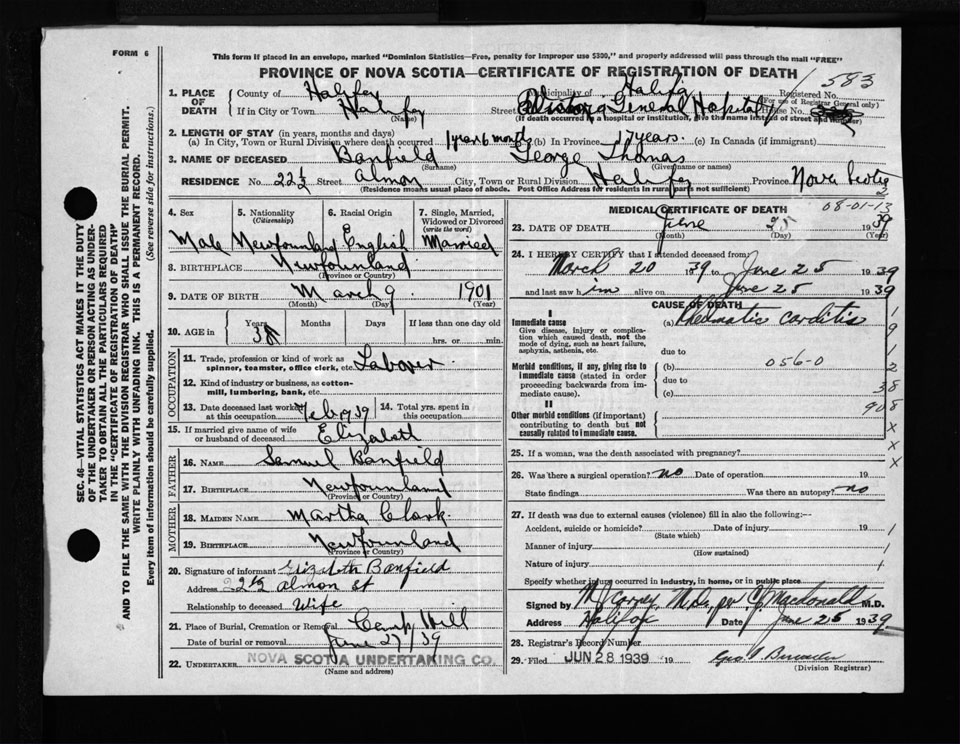 FORM 6
This form if placed in an envelope, marked "Dominion Statistics—Free, penalty for improper use $300," and properly addressed will pass through the mail "FREE"
PROVINCE OF NOVA SCOTIA—CERTIFICATE OF REGISTRATION OF DEATH
1. PLACE OF DEATH
County of Halifax Municipality of Halifax Registered No. 583
(For use of Registrar General only)
If in City or Town Halifax Street Victoria General Hospital House No.
(Name) (If death occurred in a hospital or institution, give the name instead of street and number)
2. LENGTH OF STAY (in years, months and days)
(a) In City, Town or Rural Division where death occurred 1 year 6 month (b) In Province 17 years. (c) In Canada (if immigrant)
3. NAME OF DECEASED Banfield George Thomas
(Surname) (Given name or names)
RESIDENCE No. 22½ Street Almon City, Town or Rural Division Halifax Province Nova Scotia
(Residence means usual place of abode. Post Office Address for residents in rural parts not sufficient)
4. Sex
Male
5. Nationality (Citizenship)
Newfoundland
6. Racial Origin
English
7. Single, Married, Widowed or Divorced (write the word)
Married
8. BIRTHPLACE Newfounland
(Province or Country)
9. DATE OF BIRTH March 9 1901
(Month) (Day) (Year)
10. AGE in Years Months Days If less than one day old
38 hrs. or min.
OCCUPATION
11. Trade, profession or kind of work as spinner, teamster, office clerk, etc. Laborer
12. Kind of industry or business, as cotton-mill, lumbering, bank, etc.
13. Date deceased last worked at this occupation Feb 1939
14. Total yrs. spent in this occupation
15. If married give name of wife or husband of deceased Elizabeth
FATHER
16. NAME Samuel Banfield
17. BIRTHPLACE Newfounland
(Province or Country)
MOTHER
18. MAIDEN NAME Martha Clark
19. BIRTHPLACE Newfounland
(Province or Country)
20. Signature of informant Elizabeth Banfield
Address 22½ Almon St
Relationship to deceased Wife
21. Place of Burial, Cremation or Removal Camp Hill
Date of burial or removal June 27/39
22. UNDERTAKER NOVA SCOTIA UNDERTAKING CO.
(Name and address)
MEDICAL CERTIFICATE OF DEATH 08-01-13
23. DATE OF DEATH June 25 1939
(Month) (Day) (Year)
24. I HEREBY CERTIFY that I attended deceased from:
March 20 1939 to June 25 1939
and last saw him alive on June 25 1939
CAUSE OF DEATH
I
Immediate cause (a) Rheumatic carditis
Give disease, injury or complication which caused death, not the mode of dying, such as heart failure, asphyxia, asthenia, etc.
due to
Morbid conditions, if any, giving rise to immediate cause (stated in order proceeding backwards from immediate cause).
(b) 056-0
due to
(c)
II
Other morbid conditions (if important) contributing to death but not causally related to immediate cause.
1
9
1
2
38
908
x
x
x
25. If a woman, was the death associated with pregnancy?
26. Was there a surgical operation? no Date of operation 19
State findings Was there an autopsy? no
27. If death was due to external causes (violence) fill in also the following:—
Accident, suicide or homicide? Date of injury 19
(State which)
Manner of injury
(How sustained)
Nature of injury
Specify whether injury occurred in industry, in home, or in public place
Signed by M.D., per Macdonald M.D.
Address Halifax Date June 25 1939
28. Registrar's Record Number
29. Filed JUN 28 1939 19
(Division Registrar)
SEC. 46—VITAL STATISTICS ACT MAKES IT THE DUTY OF THE UNDERTAKER OR PERSON ACTING AS UNDERTAKER TO OBTAIN ALL THE PARTICULARS REQUIRED IN THE "CERTIFICATE OF REGISTRATION OF DEATH"
AND TO FILE THE SAME WITH THE DIVISION REGISTRAR WHO SHALL ISSUE THE BURIAL PERMIT.
WRITE PLAINLY WITH UNFADING INK. THIS IS A PERMANENT RECORD.
Every item of information should be carefully supplied. (See reverse side for instructions.)